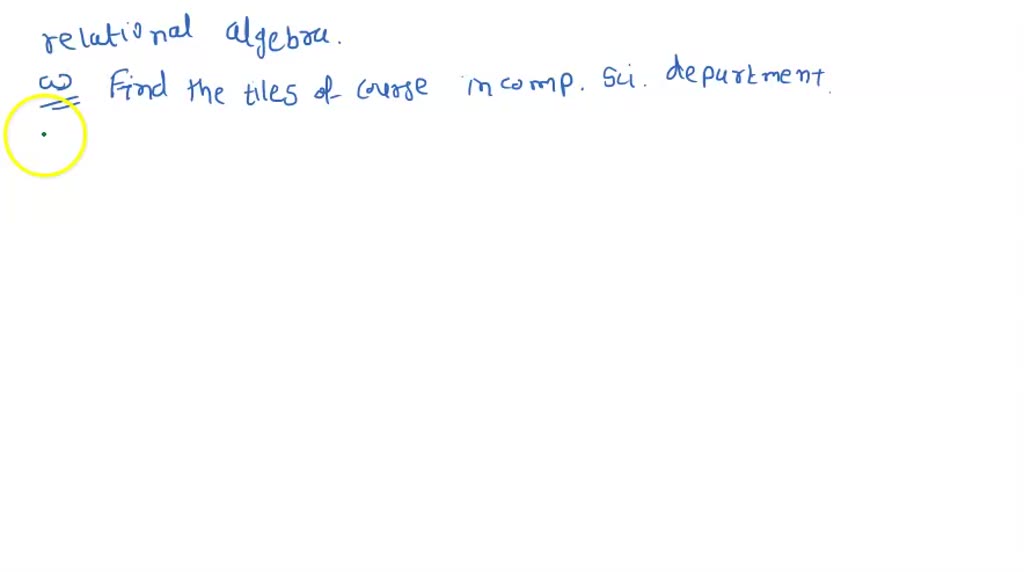 relational algebra.
a) Find the tiles of course in comp. Sci. department.